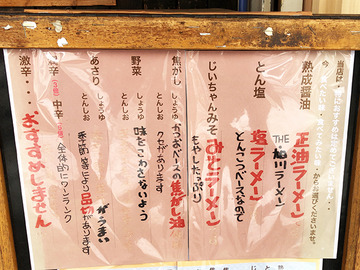 当店は
今、食べたい
からお選びくださいませ。
熟成醤油
正油ラーメン
THE 旭川ラーメン
とん塩
塩ラーメン
とんこつベースなので
じいちゃんみそ
みそラーメン
もやしたっぷり
焦がし
しょうゆ
とんしお
かつおベースの焦がし油
クセがあります
野菜
しょうゆ
とんしお
味をこわさないよう
あさり
しょうゆ
とんしお
がうまい
季節等により品切があります
辛
中辛
全体的にワンランク
激辛・・・おすすめしません